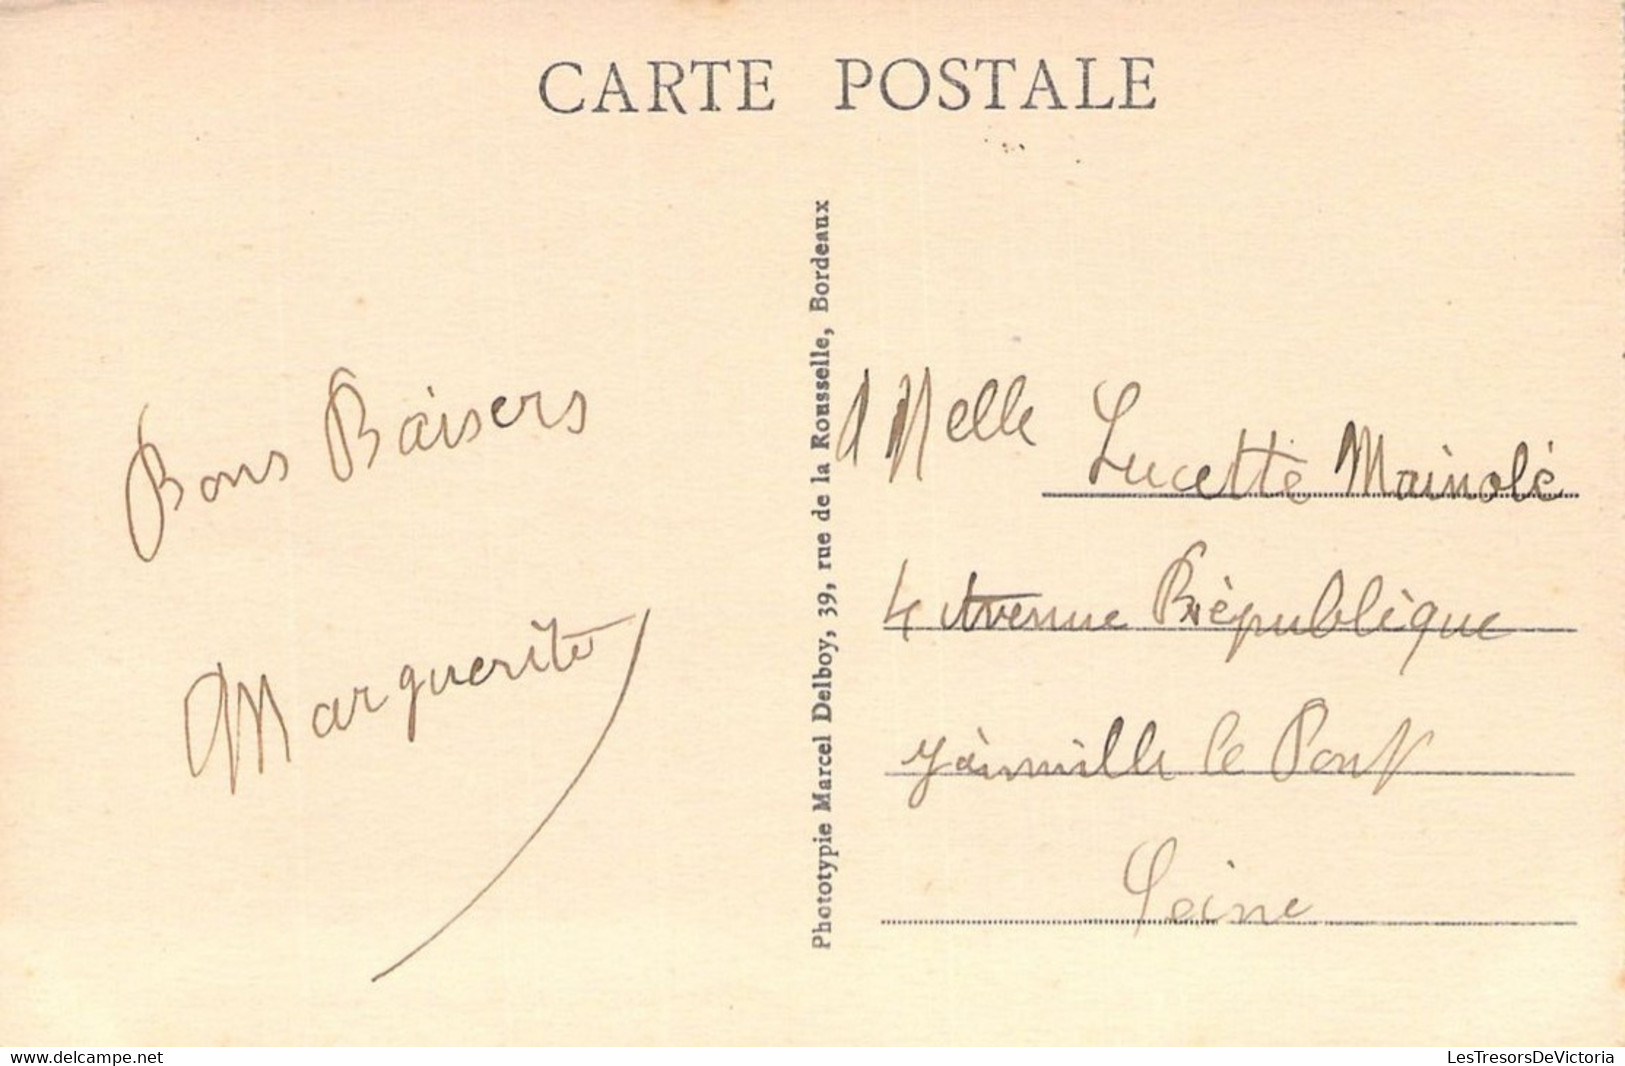 CARTE POSTALE
Bons Baisers
Marguerite
Phototypie Marcel Delboy, 39, rue de la Rousselle, Bordeaux
Melle
Lucette Mainolé
4 Avenue République
Joinville le Pont
Seine
www.delcampe.net
LesTresorsDeVictoria